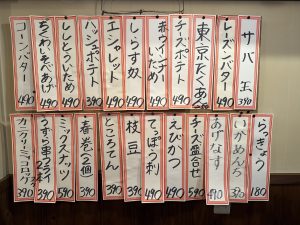 サバ玉 390
レーズンバター 490
東京たくあん
チーズポテト 490
赤ウインナーいため 490
しらす奴 490
エシャレット 490
ハッシュポテト 390
ししとういため 490
ちくわいそべあげ 490
コーンバター 490
らっきょう 180
いかめんち 390
あげなす 490
チーズ盛合せ 590
えびかつ 490
てっぽう刺 490
枝豆 390
ところてん 390
春巻(2個) 390
ミックスナッツ 590
うずら串フライ 2本 390
カニクリーミーコロッケ 390